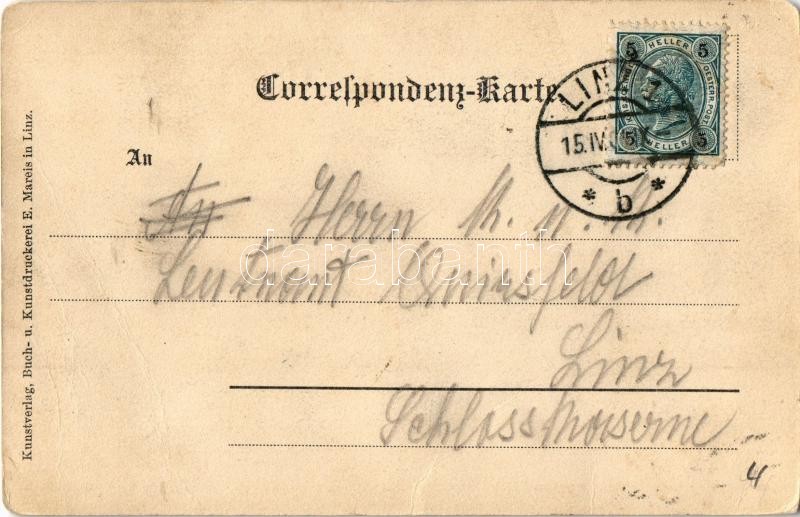 Correspondenz-Karte
5 HELLER 5
5 HELLER 5
LINZ
15.IV.
* b *
An
Herrn K. u. K.
Leutnant
Linz
Schlosskaserne
4
Kunstverlag, Buch- u. Kunstdruckerei E. Mareis in Linz.
darabanth